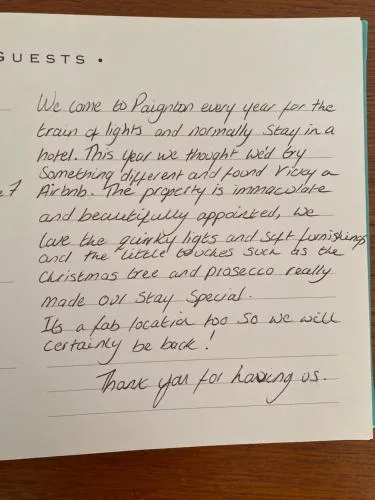 GUESTS •
We come to Paignton every year for the
train of lights and normally stay in a
hotel. This year we thought we'd try
Something different and found Vicky on
Airbnb. The property is immaculate
and beautifully appointed, we
love the quirky ligts and soft furnishings
and the little touches such as the
Christmas tree and prosecco really
made our stay special.
Its a fab location too so we will
certainly be back!
Thank you for having us.